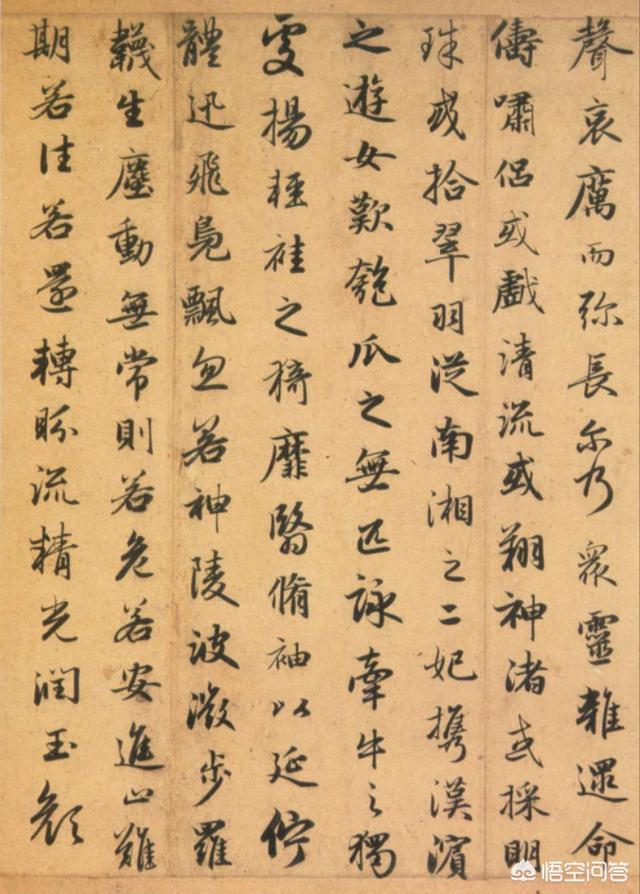 聲哀厲而弥長尒乃衆靈雜遝命
儔嘯侣或戲清流或翔神渚或採明
珠或拾翠羽從南湘之二妃攜漢濱
之遊女歎匏瓜之無匹詠牽牛之獨
處揚輕袿之猗靡翳脩袖以延佇
體迅飛鳧飄忽若神陵波微步羅
韈生塵動無常則若危若安進止難
期若往若還轉盻流精光潤玉顔
悟空问答